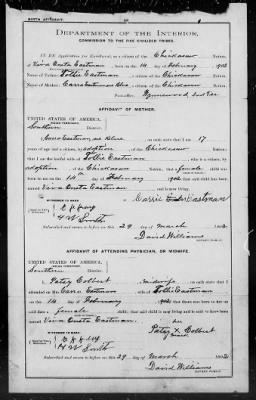 BIRTH AFFIDAVIT.
DEPARTMENT OF THE INTERIOR,
COMMISSION TO THE FIVE CIVILIZED TRIBES.
IN RE Application for Enrollment, as a citizen of the Chickasaw Nation,
of Viva Eneta Eastman, born on the 14 day of February 1902
Name of Father: Tollie Eastman a citizen of the Chickasaw Nation.
Name of Mother: Carrie Eastman a citizen of the Chickasaw Nation.
Postoffice Wynnewood, Ind Ter
AFFIDAVIT OF MOTHER.
UNITED STATES OF AMERICA,
INDIAN TERRITORY,
Southern District.
I, Eastman, on oath state that I am 17
years of age and a citizen by adoption of the Chickasaw Nation;
that I am the lawful wife of Tollie Eastman, who is a citizen, by
adoption of the Chickasaw Nation; that a female child
was born to me on the 14 day of February 1902 that said child has been
named Viva Eneta Eastman, and is now living.
Carrie Eastman
WITNESSES TO MARK:
H W Smith
Subscribed and sworn to before me this 29 day of March 1902
David Williams
AFFIDAVIT OF ATTENDING PHYSICIAN, OR MIDWIFE.
UNITED STATES OF AMERICA,
INDIAN TERRITORY,
Southern District.
I, Patsy Colbert, a midwife, on oath state that I
attended on Mrs. Eastman, wife of Tollie Eastman
on the 14 day of February 1902 that there was born to her on
said date a female child; that said child is now living and is said to have been
named Viva Eneta Eastman.
Patsy X Colbert
WITNESSES TO MARK:
H W Smith
Subscribed and sworn to before me this 29 day of March 1902
David Williams